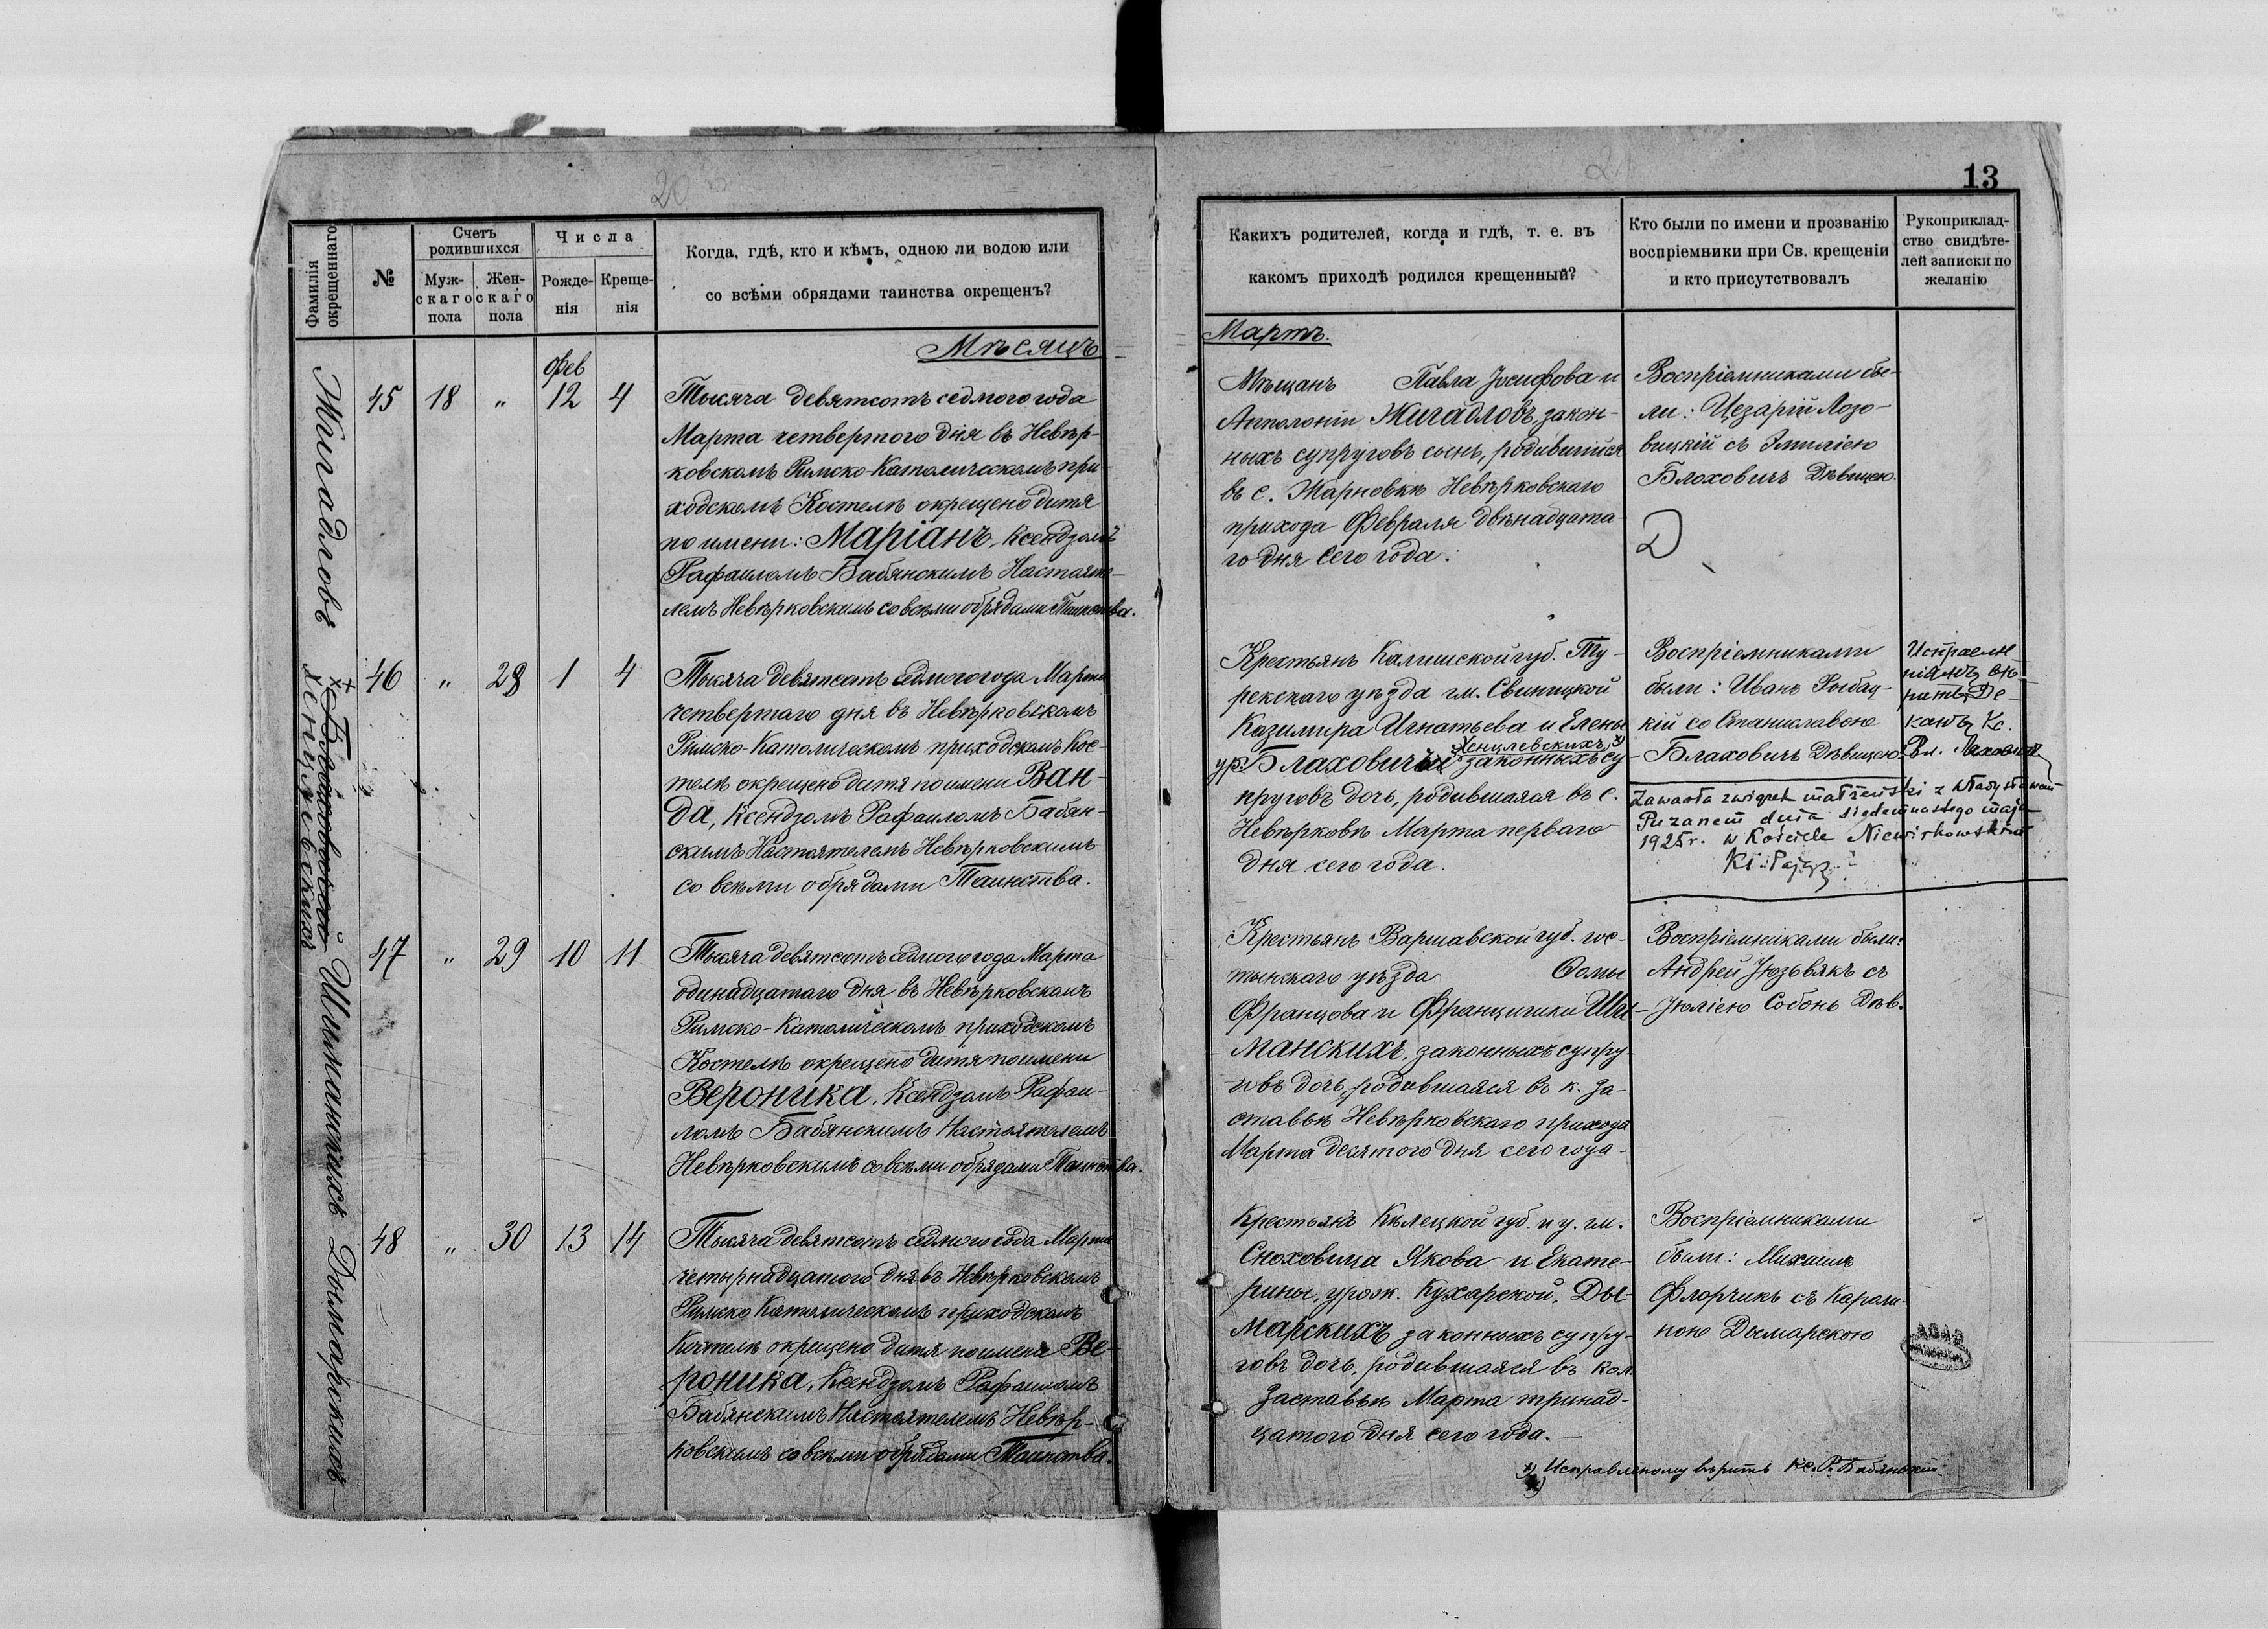 20
21
13
Фамилія
окрещеннаго
№
Счетъ
родившихся
Муж-
скаго
пола
Жен-
скаго
пола
Числа
Рожде-
нія
Креще-
нія
Когда, гдѣ, кто и кѣмъ, одною ли водою или
со всѣми обрядами таинства окрещенъ?
Какихъ родителей, когда и гдѣ, т. е. въ
какомъ приходѣ родился крещенный?
Кто были по имени и прозванію
воспріемники при Св. крещеніи
и кто присутствовалъ
Рукоприклад-
ство свидѣте-
лей записки по
желанію
Мѣсяцъ
Мартъ.
Жигадловъ
45 18 " Фев 12 4
Тысяча девятсотъ седмого года
Марта четвертого дня въ Невѣр-
ковскомъ Римско-Католическомъ при-
ходскомъ Костелѣ окрещено дитя
по имени: Маріанъ, Ксендзомъ
Рафаиломъ Бабянскимъ Настояте-
лемъ Невѣрковскимъ со всѣми обрядами Таинства.
Мѣщанъ Павла Іосифова и
Апполоніи Жигадловъ, закон-
ныхъ супруговъ сынъ, родившійся
въ с. Жарновкѣ Невѣрковскаго
прихода Февраля двѣнадцата-
го дня сего года.
Воспріемниками бы-
ли: Цезарій Лозо-
вицкій съ Эмиліею
Блоховичъ Дѣвицею.
Хенцлевскихъ
46 " 28 1 4
Тысяча девятсотъ седмого года Марта
четвертаго дня въ Невѣрковскомъ
Римско-Католическомъ приходскомъ Кос-
телѣ окрещено дитя по имени Ван-
да, Ксендзомъ Рафаиломъ Бабян-
скимъ Настоятелемъ Невѣрковскимъ
со всѣми обрядами Таинства.
Крестьянъ Калишской губ. Ту-
рекскаго уѣзда гм. Свиницкой
Казимира Игнатьева и Елены
Хенцлевскихъ x)
ур. Блаховичъ законныхъ су-
пруговъ дочь, родившаяся въ с.
Невѣрковѣ Марта перваго
дня сего года.
Воспріемниками
были: Иванъ Рыбац-
кій со Станиславою
Блаховичъ Дѣвицею.
Zawarła związek małżeński z Władysławem
Puzanem dnia siedemnastego maja
1925 r. w Kościele Niewirkowskim
Шиманскихъ
47 " 29 10 11
Тысяча девятсотъ седмого года Марта
одинадцатаго дня въ Невѣрковскомъ
Римско-Католическомъ приходскомъ
Костелѣ окрещено дитя по имени
Вероника. Ксендзомъ Рафаи-
ломъ Бабянскимъ Настоятелемъ
Невѣрковскимъ со всѣми обрядами Таинства.
Крестьянъ Варшавской губ. гос-
тынскаго уѣзда Ѳомы
Францова и Францишки Ши-
манскихъ, законныхъ супру-
говъ дочь, родившаяся въ к. За-
ставьѣ Невѣрковскаго прихода
Марта десятого дня сего года.
Воспріемниками были:
Андрей Юзьвякъ съ
Юліею Собонь Дѣв.
Дымарскихъ
48 " 30 13 14
Тысяча девятсотъ седмого года Марта
четырнадцатого дня въ Невѣрковскомъ
Римско Католическомъ приходскомъ
Костелѣ окрещено дитя по имени Ве-
роника, Ксендзомъ Рафаиломъ
Бабянскимъ Настоятелемъ Невѣр-
ковскимъ со всѣми обрядами Таинства.
Крестьянъ Кѣлецкой губ. и у. гм.
Сноховица Якова и Екате-
рины, урож. Кухарской, Ды-
марскихъ законныхъ супру-
говъ дочь, родившаяся въ кол.
Заставьѣ Марта тринад-
цатого дня сего года.
Воспріемниками
были: Михаилъ
Флорчикъ съ Кароли-
ною Дымарскою
x) Исправленому вѣрить Кс. Р. Бабянскій